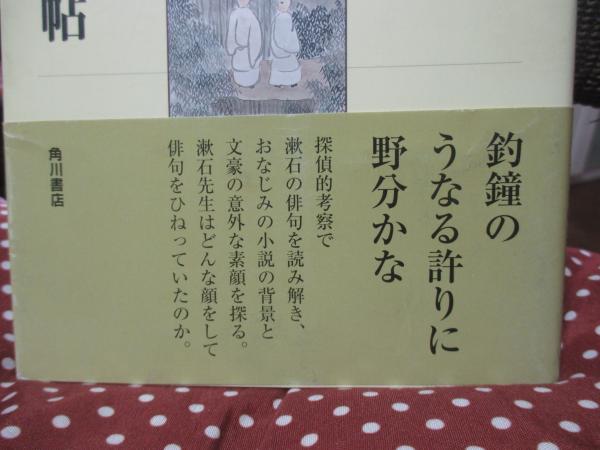 帖
釣鐘の
うなる許りに
野分かな
探偵的考察で
漱石の俳句を読み解き、
おなじみの小説の背景と
文豪の意外な素顔を探る。
漱石先生はどんな顔をして
俳句をひねっていたのか。
角川書店